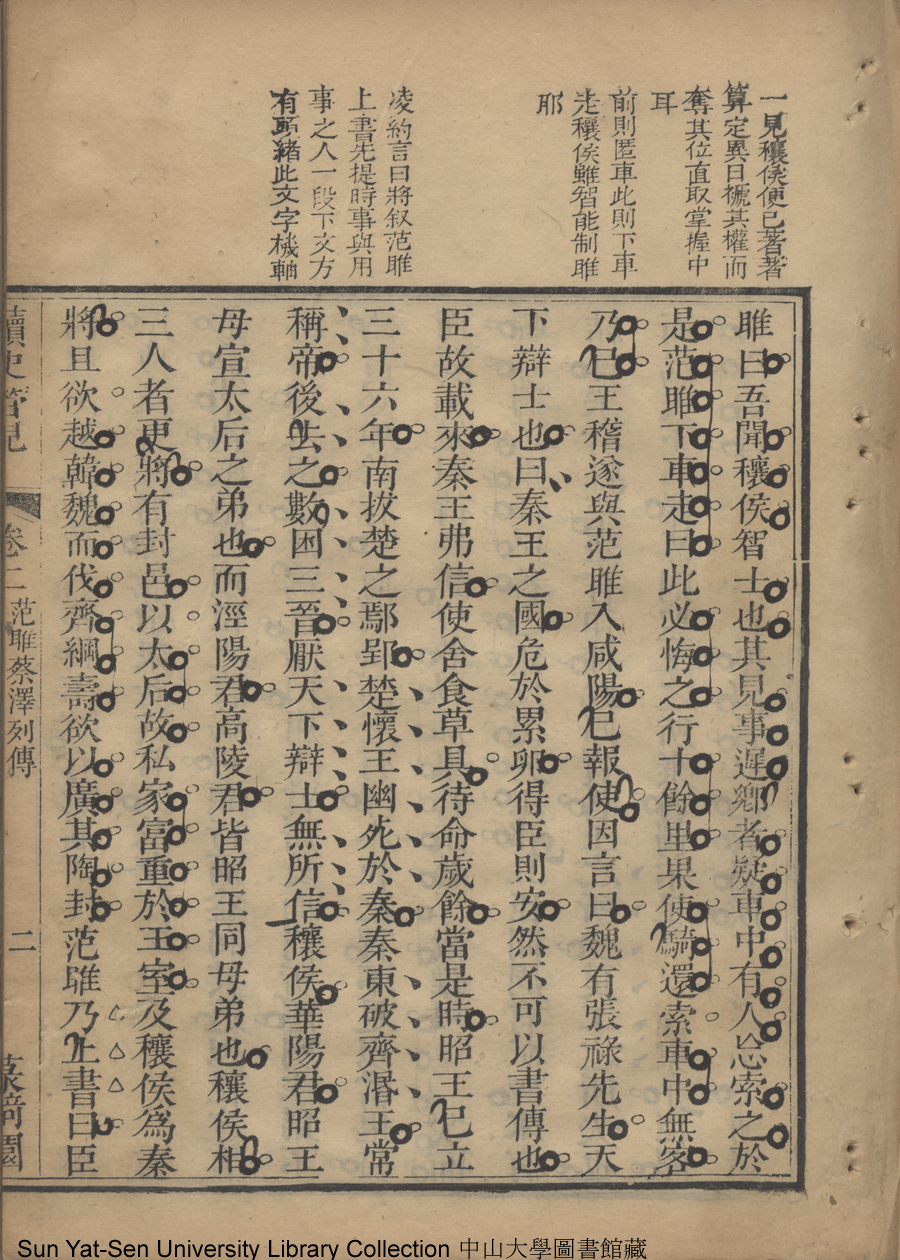 一見穰侯便已著著
算定異日褫其權而
奪其位直取掌握中
耳
前則匿車此則下車
走穰侯雖智能制雎
耶
凌約言曰將叙范雎
上書先提時事與用
事之人一段下文方
有頭緒此文字機軸
雎曰吾聞穰侯智士也其見事遲鄉者疑車中有人忘索之於
是范雎下車走曰此必悔之行十餘里果使騎還索車中無客
乃已王稽遂與范雎入咸陽已報使因言曰魏有張祿先生天
下辯士也曰秦王之國危於累卵得臣則安然不可以書傳也
臣故載來秦王弗信使舍食草具待命歲餘當是時昭王已立
三十六年南拔楚之鄢郢楚懷王幽死於秦秦東破齊湣王常
稱帝後去之數困三晉厭天下辯士無所信穰侯華陽君昭王
母宣太后之弟也而涇陽君高陵君皆昭王同母弟也穰侯相
三人者更將有封邑以太后故私家富重於王室及穰侯爲秦
將且欲越韓魏而伐齊綱壽欲以廣其陶封范雎乃上書曰臣
讀史管見
卷二
范雎蔡澤列傳
二
Sun Yat-Sen University Library Collection 中山大學圖書館藏